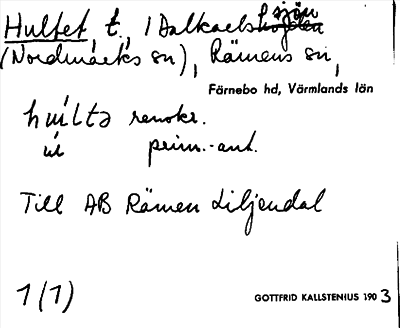 Hultet t., i Dalkarlssjön
(Nordmarks sn), Rämens sn,
Färnebo hd, Värmlands län
hu̍ltə renskr.
ut prim.-ant.
Till AB Rämen Liljendal
1 (1)
GOTTFRID KALLSTENIUS 1903